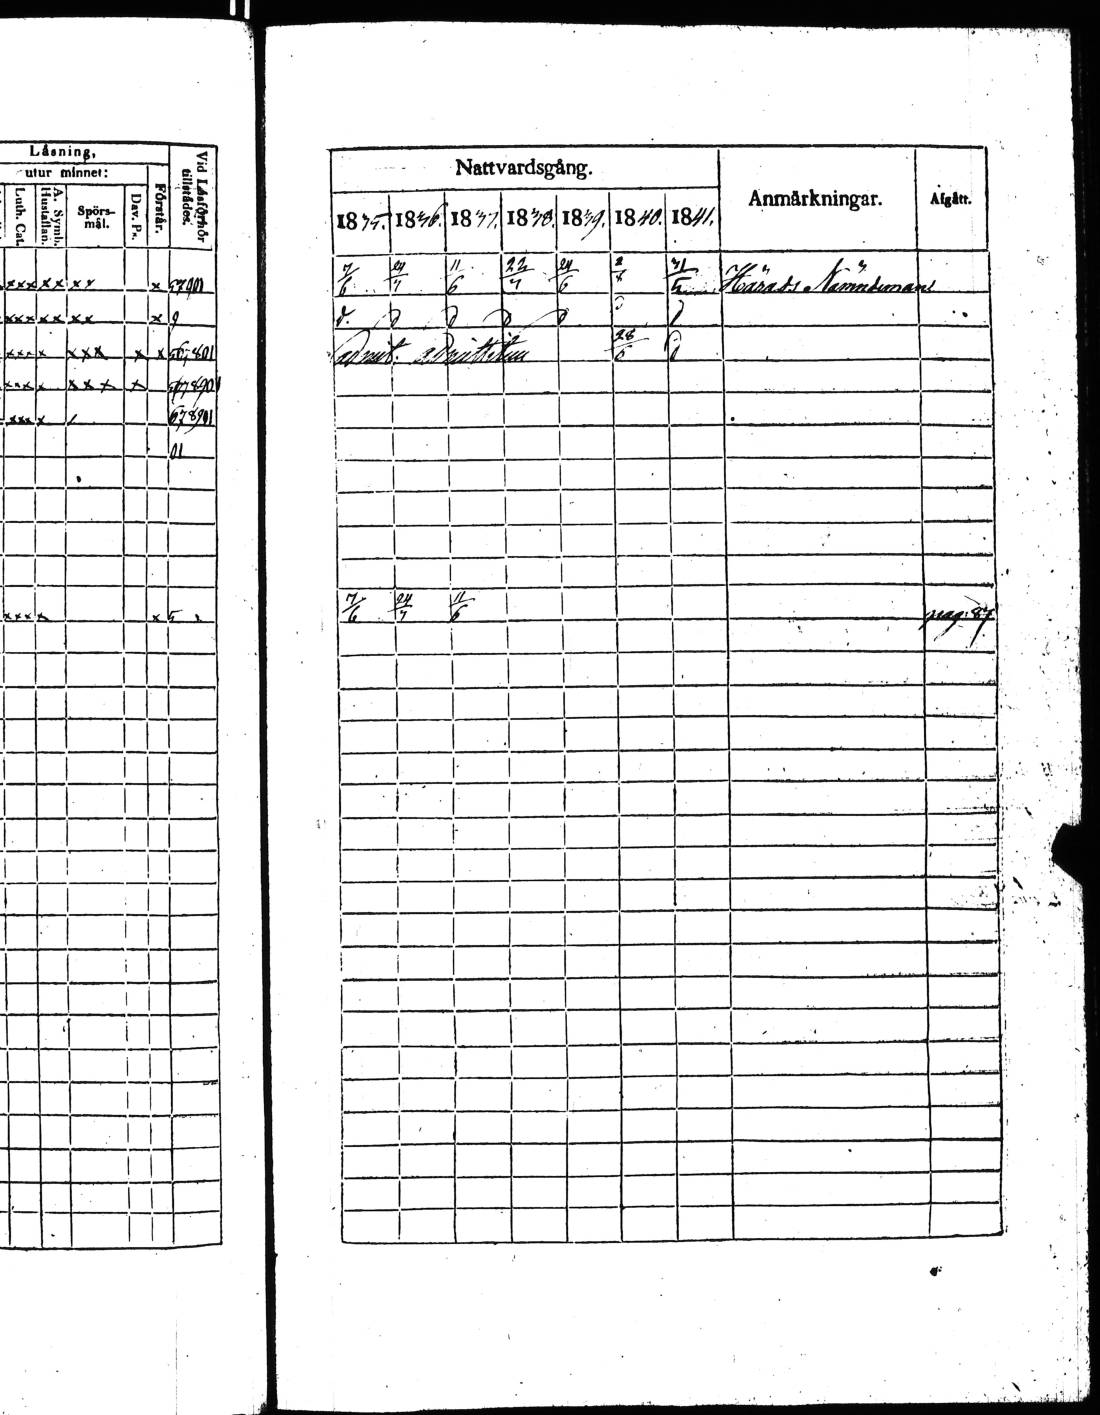 Läsning,
utur minnet:
Luth. Cat.
A. Symb. Hustaflan.
Spörs-
mål.
Dav. Ps.
Förstår.
Vid Läsförhör
tillstädes.
Nattvardsgång.
Anmärkningar.
Afgått.
1835. 1836. 1837. 1838. 1839. 1840. 1841.
xxx x x x x x 57901
7/6 24/7 11/6 22/7 24/6 2/8 31/5 Härads Nämndeman
xxx x x x x x 9
d. d d d d d d
xxx x x x x x x 567801
admit. admitteten 28/6 d
xxx x x x x x 5678901
xxx x / 678901
01
xxxx x 5
7/6 24/7 11/6 pag: 87